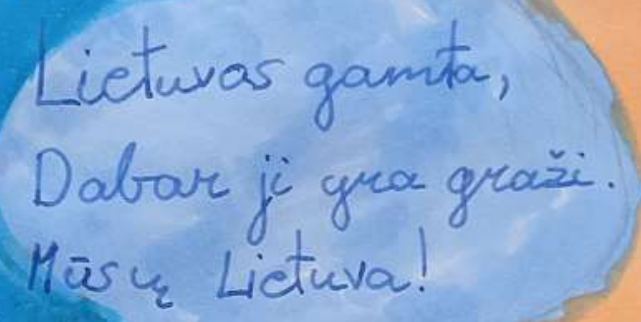 Lietuvos gamta,
Dabar ji yra graži.
Mūsų Lietuva!